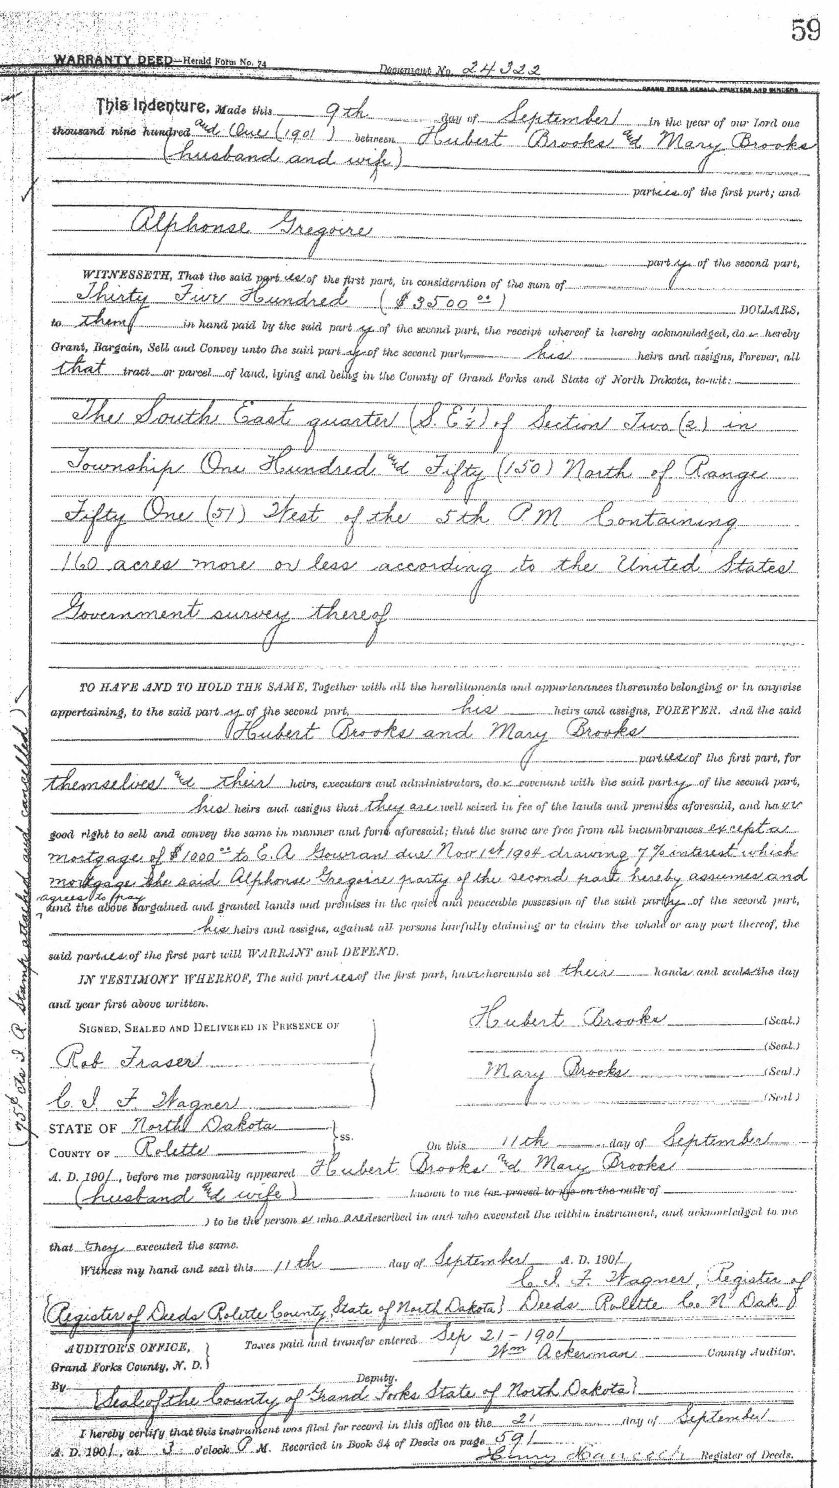 59
WARRANTY DEED—Herald Form No. 74
Document No. 24322
GRAND FORKS HERALD, PRINTERS AND BINDERS
This Indenture, Made this 9th day of September in the year of our Lord one
thousand nine hundred and One (1901) between Hubert Brooks and Mary Brooks
(husband and wife)
parties of the first part; and
Alphonse Gregoire
party of the second part,
WITNESSETH, That the said parties of the first part, in consideration of the sum of
Thirty Five Hundred ($3500 00) DOLLARS,
to them in hand paid by the said party of the second part, the receipt whereof is hereby acknowledged, do hereby
Grant, Bargain, Sell and Convey unto the said party of the second part, his heirs and assigns, Forever, all
that tract or parcel of land, lying and being in the County of Grand Forks and State of North Dakota, to-wit:
The South East quarter (S.E ¼) of Section Two (2) in
Township One Hundred and Fifty (150) North of Range
Fifty One (51) West of the 5th P M Containing
160 acres more or less according to the United States
Government survey thereof
TO HAVE AND TO HOLD THE SAME, Together with all the hereditaments and appurtenances thereunto belonging or in anywise
appertaining, to the said party of the second part, his heirs and assigns, FOREVER. And the said
Hubert Brooks and Mary Brooks
parties of the first part, for
themselves and their heirs, executors and administrators, do covenant with the said party of the second part,
his heirs and assigns that they are well seized in fee of the lands and premises aforesaid, and have
good right to sell and convey the same in manner and form aforesaid; that the same are free from all incumbrances except a
mortgage of $1000 00 to E. A. Gowran due Nov 1st 1904 drawing 7% interest which
mortgage the said Alphonse Gregoire party of the second part hereby assumes and
agrees to pay
and the above bargained and granted lands and premises in the quiet and peaceable possession of the said party of the second part,
his heirs and assigns, against all persons lawfully claiming or to claim the whole or any part thereof, the
said parties of the first part will WARRANT and DEFEND.
IN TESTIMONY WHEREOF, The said parties of the first part, have hereunto set their hands and seals the day
and year first above written.
SIGNED, SEALED AND DELIVERED IN PRESENCE OF
Hubert Brooks (Seal.)
(Seal.)
Rob Fraser
Mary Brooks (Seal.)
C I F Wagner
(Seal.)
STATE OF North Dakota
COUNTY OF Rolette } ss.
On this 11th day of September
A. D. 1901, before me personally appeared Hubert Brooks and Mary Brooks
(husband and wife) known to me (or proved to me on the oath of
) to be the persons who are described in and who executed the within instrument, and acknowledged to me
that they executed the same.
Witness my hand and seal this 11th day of September A. D. 1901
C. I. F. Wagner, Register of
{Register of Deeds Rolette County, State of North Dakota} Deeds Rolette Co. N Dak
AUDITOR'S OFFICE,
Grand Forks County, N. D.
Taxes paid and transfer entered Sep 21-1901
Wm Ackerman County Auditor.
By Deputy.
{Seal of the County of Grand Forks State of North Dakota}
I hereby certify that this instrument was filed for record in this office on the 21 day of September
A. D. 1901, at 3 o'clock P M. Recorded in Book 34 of Deeds on page 591
Henry Hancock Register of Deeds.
(75¢ cts I. R Stamp attached and cancelled)